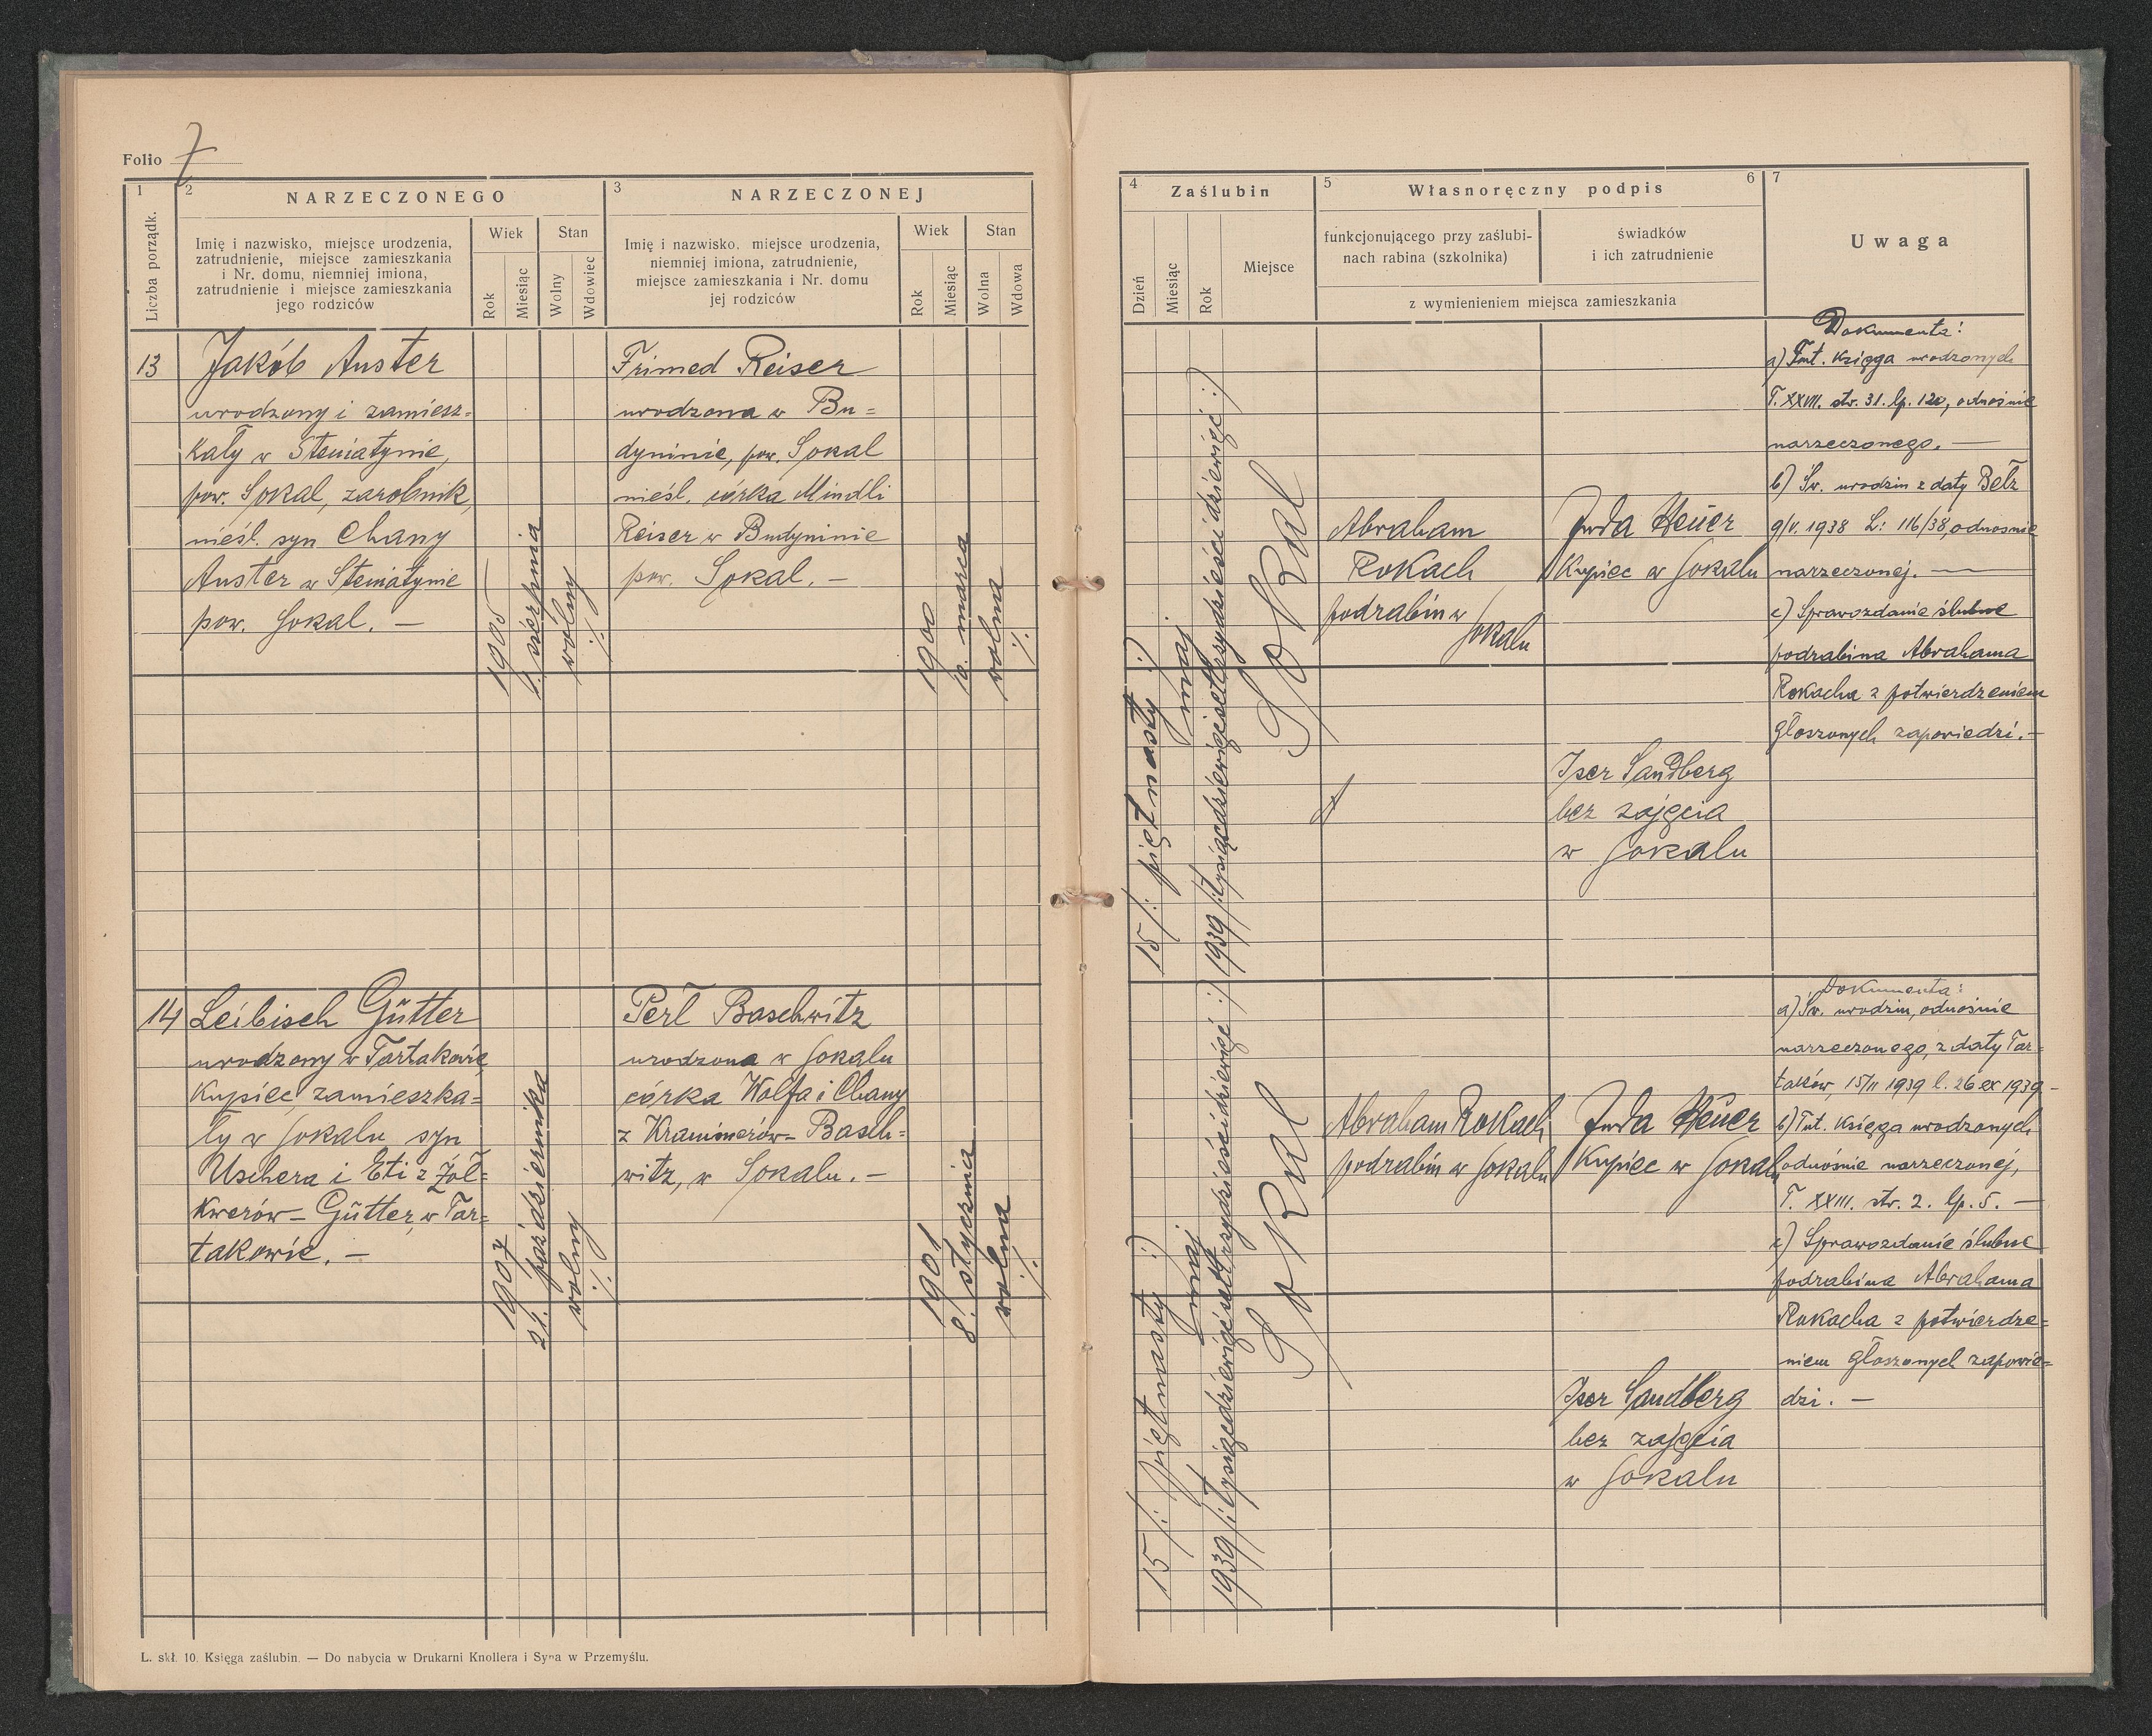 Folio 7
1
2
NARZECZONEGO
3
NARZECZONEJ
Liczba porządk.
Imię i nazwisko, miejsce urodzenia,
zatrudnienie, miejsce zamieszkania
i Nr. domu, niemniej imiona,
zatrudnienie i miejsce zamieszkania
jego rodziców
Wiek
Stan
Rok
Miesiąc
Wolny
Wdowiec
Imię i nazwisko, miejsce urodzenia,
niemniej imiona, zatrudnienie,
miejsce zamieszkania i Nr. domu
jej rodziców
Wiek
Stan
Rok
Miesiąc
Wolna
Wdowa
13
Jakób Auster
urodzony i zamiesz-
kały w Steniatynie,
pow. Sokal, zarobnik,
nieśl. syn Chany
Auster w Steniatynie
pow. Sokal. —
1905
1. sierpnia
wolny
·/.
Frimed Reiser
urodzona w Bu=
dyninie, pow. Sokal
nieśl. córka Mindli
Reiser w Budyninie
pow. Sokal. —
1900
10. marca
wolna
·/.
14
Leibisch Gütter
urodzony w Tartakowie
kupiec, zamieszka=
ły w Sokalu syn
Uschera i Eti z Żół=
kwerów – Gütter, w Tar=
takowie. —
1907
21. października
wolny
·/.
Perl Baschwitz
urodzona w Sokalu
córka Wolfa i Chany
z Kramerów – Basch=
witz, w Sokalu. —
1901
8. stycznia
wolna
·/.
L. skł. 10. Księga zaślubin. — Do nabycia w Drukarni Knollera i Syna w Przemyślu.
4
Zaślubin
5
Własnoręczny podpis
6
7
Dzień
Miesiąc
Rok
Miejsce
funkcjonującego przy zaślubi-
nach rabina (szkolnika)
świadków
i ich zatrudnienie
z wymienieniem miejsca zamieszkania
Uwaga
15 /: piętnasty :/
maj
1939 /: tysiącdziewięćsettrzydzieścidziewięć :/
Sokal
Abraham
Rokach
podrabin w
Sokalu
Juda Heuer
Kupiec w Sokalu
Iser Sandberg
bez zajęcia
w Sokalu
Dokumenta:
a) Tut. księga urodzonych
T. XXIII. str. 31. lp. 120, odnośnie
narzeczonego. —
b) Św. urodzin z daty Bełz
9/V. 1938 L: 116/38, odnośnie
narzeczonej. —
c) Sprawozdanie ślubne
podrabina Abrahama
Rokacha z potwierdzeniem
głoszonych zapowiedzi. —
15 /: piętnasty :/
maj
1939 /: tysiącdziewięćsettrzydzieścidziewięć :/
Sokal
Abraham Rokach
podrabin w Sokalu
Juda Heuer
Kupiec w Sokalu
Iser Sandberg
bez zajęcia
w Sokalu
Dokumenta:
a) Św. urodzin, odnośnie
narzeczonego, z daty Tar=
taków, 15/II 1939 l. 26 ex 1939 –
b) Tut. księga urodzonych
odnośnie narzeczonej,
T. XXIII. str. 2. lp. 5. —
c) Sprawozdanie ślubne
podrabina Abrahama
Rokacha z potwierdze=
niem głoszonych zapowie=
dzi. —